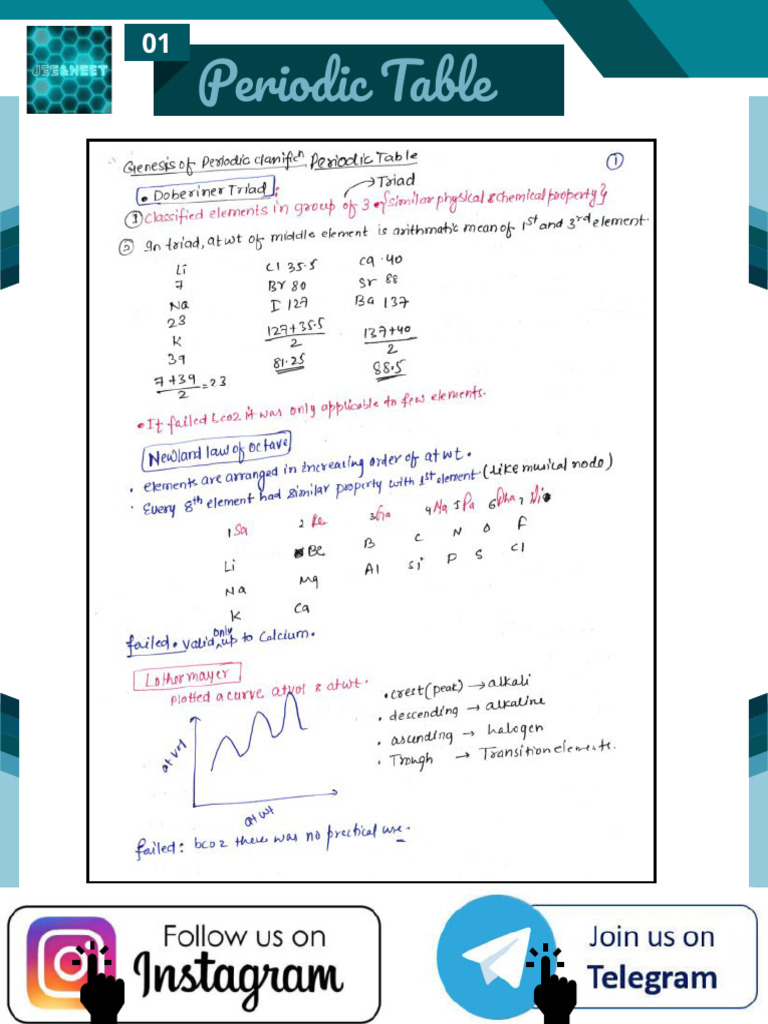 01
JEE&NEET
Periodic Table
Genesis of Periodic clanificⁿ, Periodic Table
1
• Doberiner Triad:
→ Triad
① Classified elements in group of 3 of {similar physical & chemical property}
② In triad, at wt of middle element is arithmatic mean of 1st and 3rd element.
Li
7
Na
23
K
39
7+39/2 = 23
Cl 35.5
Br 80
I 127
127+35.5/2
81.25
Ca 40
Sr 88
Ba 137
137+40/2
88.5
• It failed bcoz it was only applicable to few elements.
Newland law of octave
• elements are arranged in increasing order of at wt.
• Every 8th element had similar property with 1st element (like musical node)
1 Sa 2 Re 3 Ga 4 Ma 5 Pa 6 Dha 7 Ni
Li Be B C N O F
Na Mg Al Si P S Cl
K Ca
failed • valid only up to Calcium.
Lothormayer
plotted a curve at vol & at wt.
at vol
at wt
• crest (peak) → alkali
• descending → alkaline
• ascending → halogen
• Trough → Transition elements.
failed: bcoz there was no practical use.
Follow us on
Instagram
Join us on
Telegram